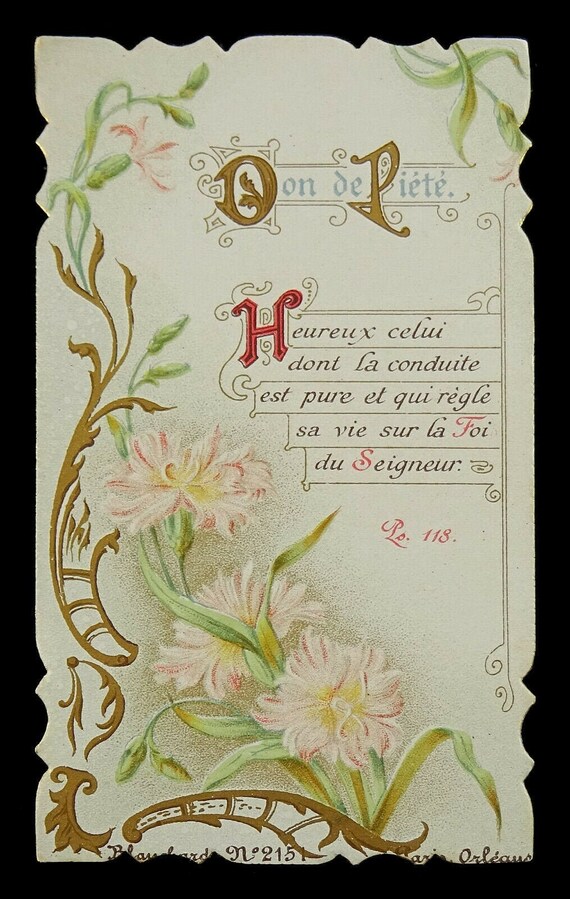 Don de Piété.
Heureux celui
dont la conduite
est pure et qui règle
sa vie sur la Foi
du Seigneur.
Ps. 118.
Blanchard Nº 2151 Paris, Orléans